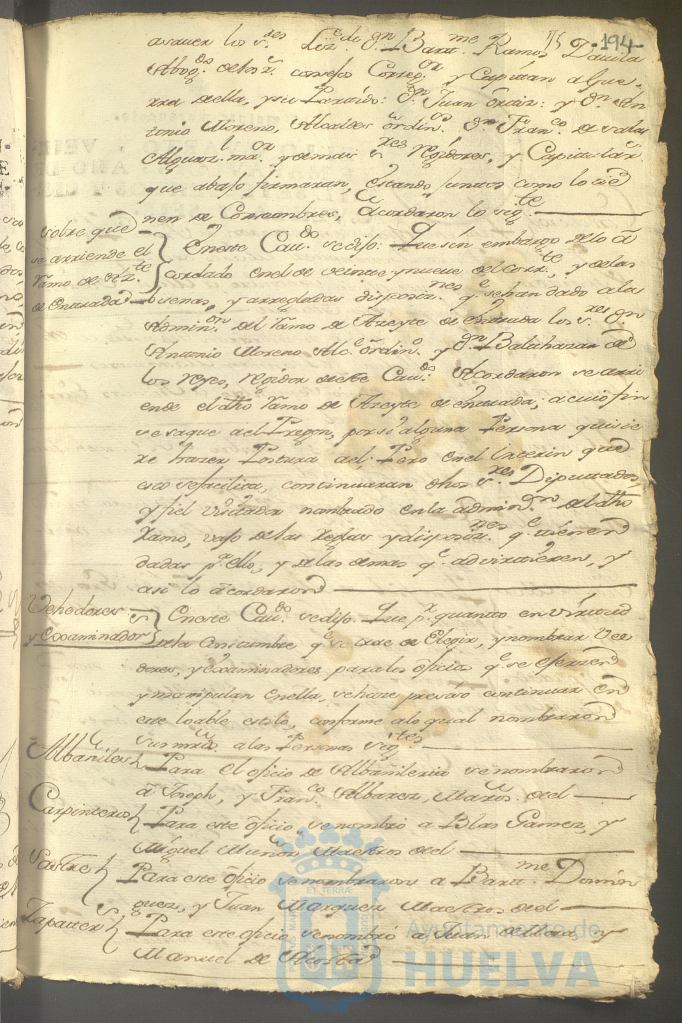 194
asauer los s.res Liz.do dn Bartt.me Ramos Dauila
Abog.do de los R.s consejos Correg.or y Capitan a Gue
rra de ella, y su Partido: Dn Juan y Dn An
tonio Moreno, Alcaldes ordin.os Dn Fran.co de
Alguaz.l m.or y demas s.res Rejidores, y Capitulares
que abajo firmaran, estando juntos como lo tie
nen de Costumbres, acordaron lo sig.te
sobre que
se arriende el
ramo de Az.te
de entrada
En este Cau.do se dijo: Que sin embargo de lo a
cordado en el de veinte y nueue del corr.te, y de las
buenas, y arregladas disposiz.nes q.e se han dado a la
Admin.on del ramo de Azeyte de entrada los s.res Dn
Antonio Moreno Alc.e ordin.o y Dn Balthazar de
los Reyes, Rejidor de este Cau.do Acordaron se arri
ende el dho ramo de Azeyte de entrada; a cuio fin
se saque a el Pregon, por si alguna Persona quisie
re hazer Postura a el; Pero en el interin que
esto se facilita, continuaran dhos s.res Diputados
y fiel nombrado en la admin.on del dho
ramo, vajo de las reglas y disposiz.nes q.e tienen
dadas p.a ello, y de las demas q.e aduirtieren, y
asi lo acordaron
Vehedores
y Exsaminador.s
En este Cau.do se dijo. Que p.r quanto en virtud
de la Costumbre q.e se trae de Elegir, y nombrar Vee
dores, y Exsaminadores para los oficios q.e se ejerzen
y manipulan en ella, se haze preciso continuar en
este loable estilo, conforme a lo qual nombraron
sus mrds. a las Personas sig.tes
Albañiles
Para el oficio de Albañileria se nombraron
a Joseph, y Fran.co Albarez, Maros. de el
Carpinteros
Para este oficio, se nombró a Blas Gamez, y
Miguel Muñoz Maestros de el
Sastre
Para este oficio se nombraron a Bartt.me Domin
guez, y Juan Marquez Maestros de el
Zapater.s
Para este oficio se nombró a Juan de y
Manuel de Acosta
Ayuntamiento de
HUELVA